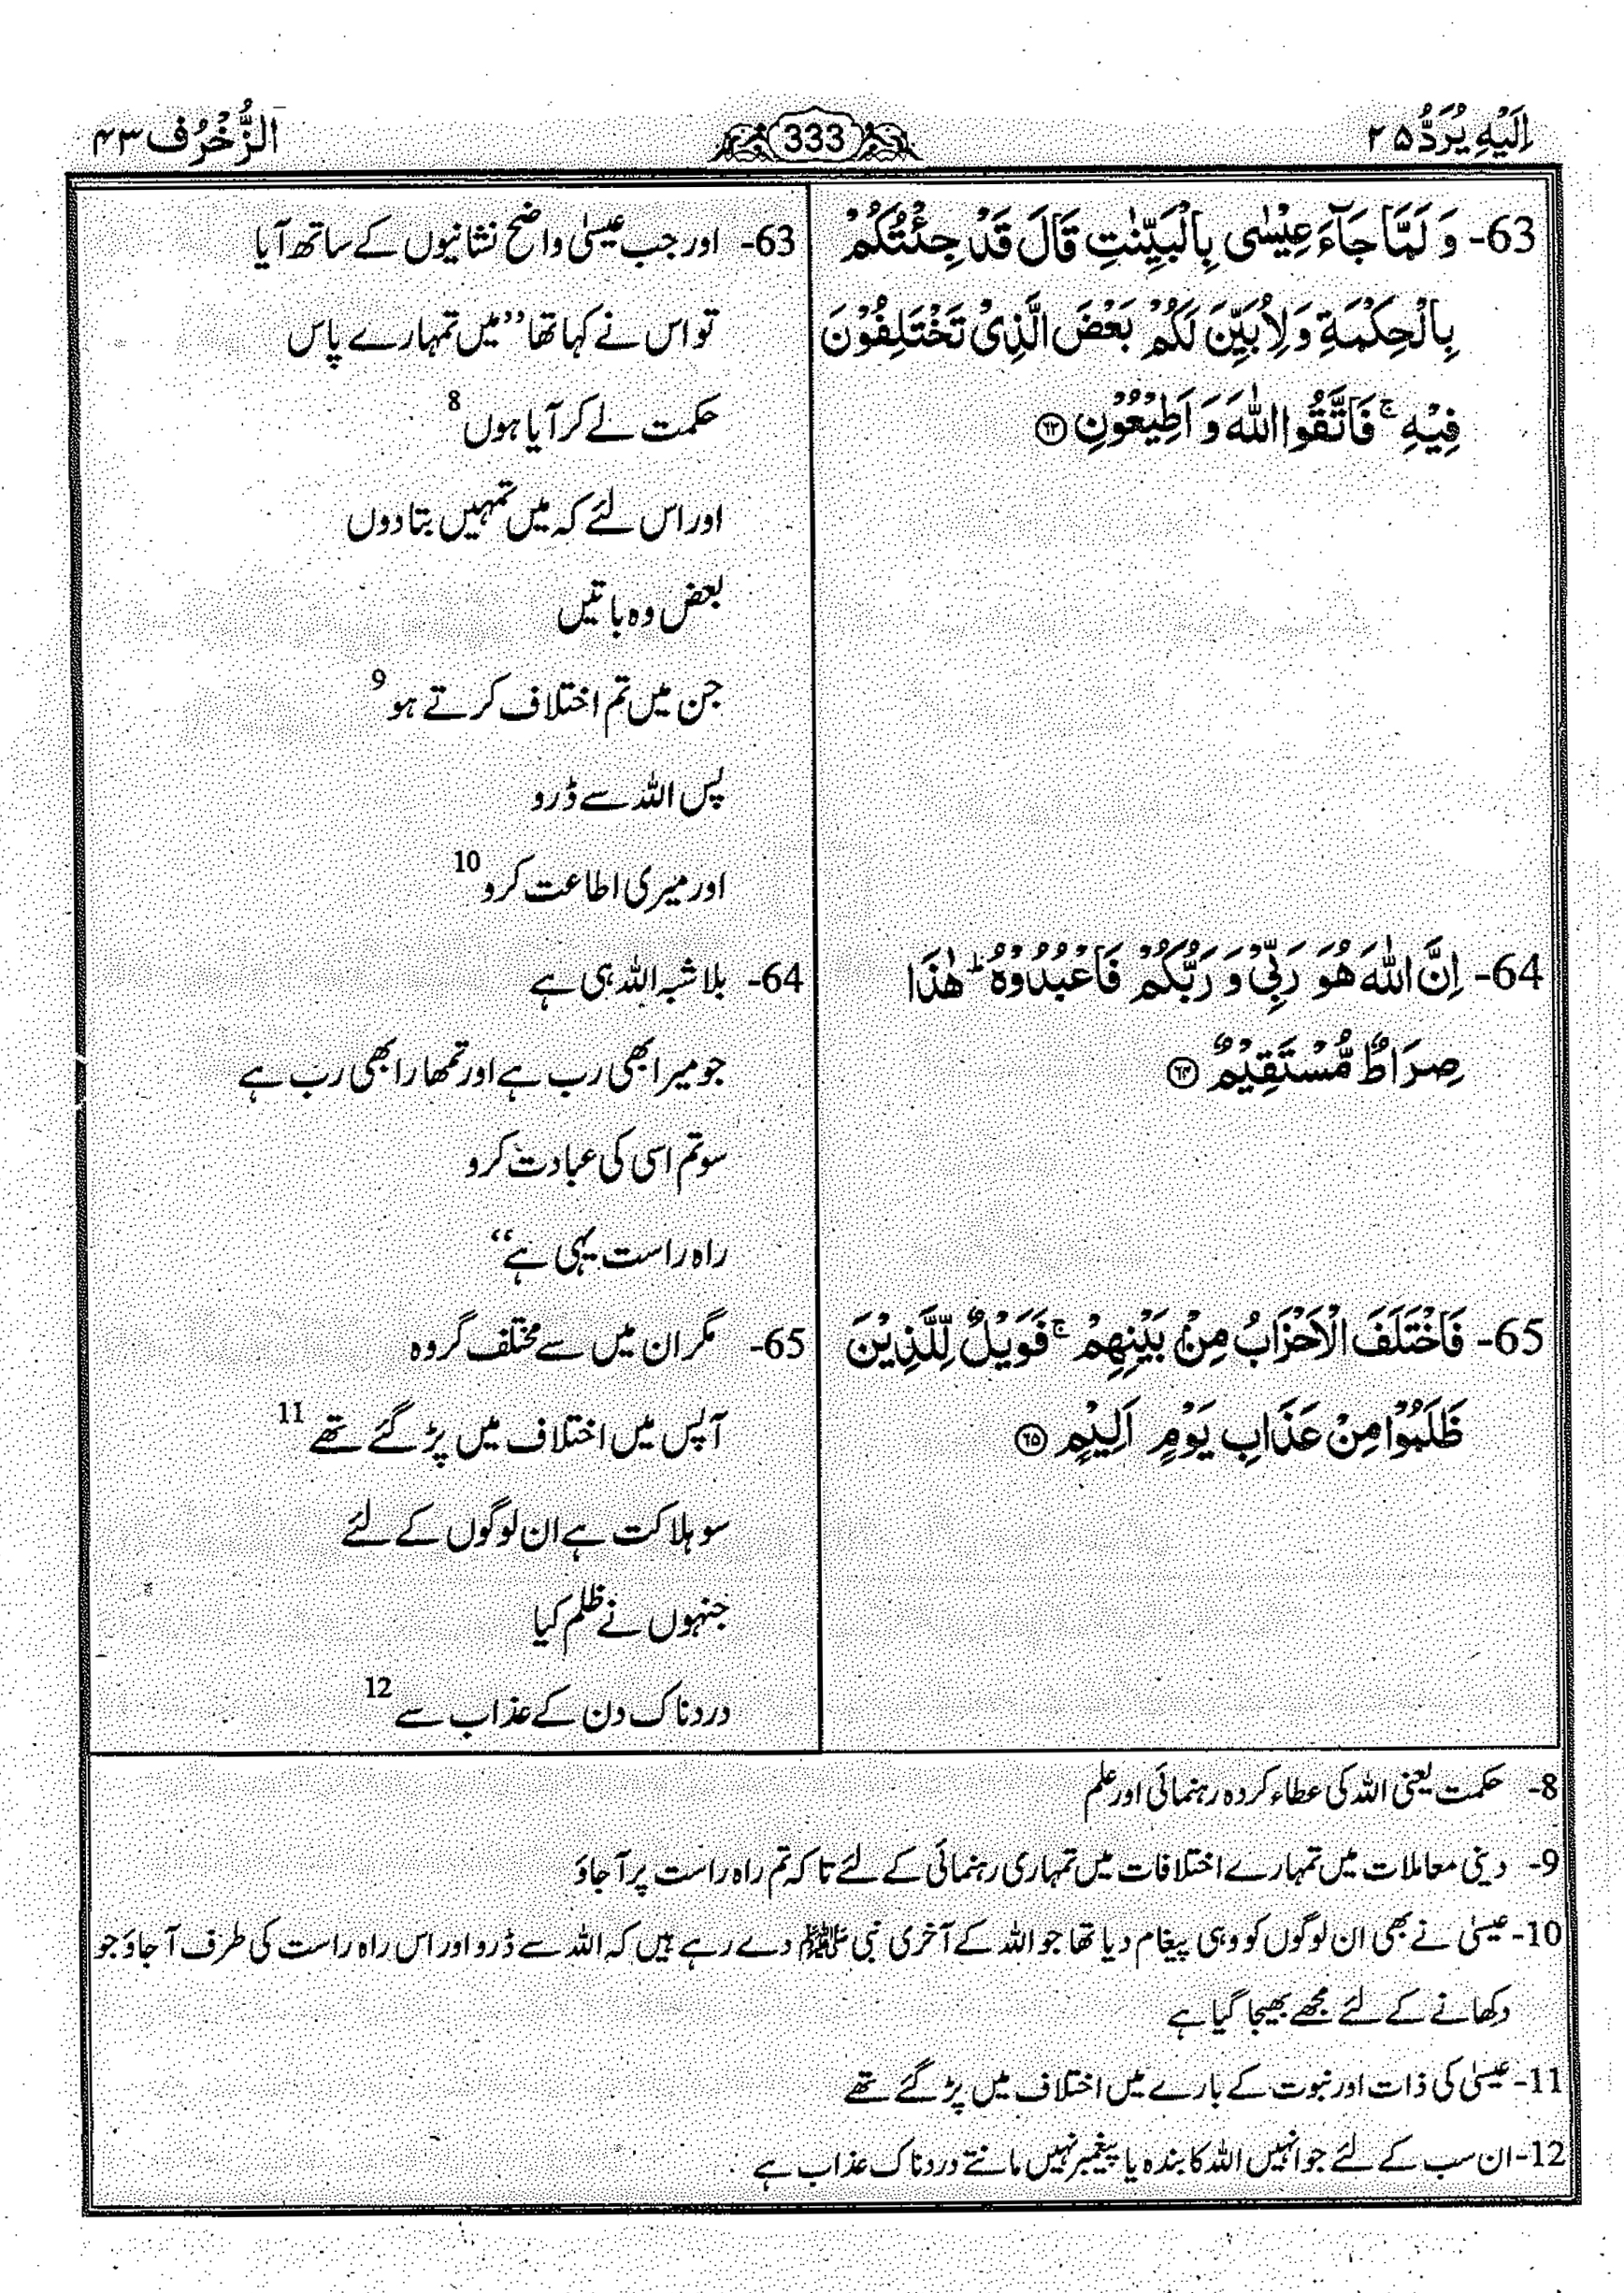 اِلَیْهِ یُرَدُّ ۲۵
333
الزُّخْرُف ۴۳
63- وَ لَمَّا جَآءَ عِیْسٰی بِالْبَیِّنٰتِ قَالَ قَدْ جِئْتُکُمْ
بِالْحِکْمَةِ وَ لِاُبَیِّنَ لَکُمْ بَعْضَ الَّذِیْ تَخْتَلِفُوْنَ
فِیْهِ ۚ فَاتَّقُوا اللّٰهَ وَ اَطِیْعُوْنِ ﴿۶۳﴾
64- اِنَّ اللّٰهَ هُوَ رَبِّیْ وَ رَبُّکُمْ فَاعْبُدُوْهُ ؕ هٰذَا
صِرَاطٌ مُّسْتَقِیْمٌ ﴿۶۴﴾
65- فَاخْتَلَفَ الْاَحْزَابُ مِنْ بَیْنِهِمْ ۚ فَوَیْلٌ لِّلَّذِیْنَ
ظَلَمُوْا مِنْ عَذَابِ یَوْمٍ اَلِیْمٍ ﴿۶۵﴾
63- اور جب عیسیٰ واضح نشانیوں کے ساتھ آیا
تو اس نے کہا تھا ’’میں تمہارے پاس
حکمت لے کر آیا ہوں 8
اور اس لئے کہ میں تمہیں بتا دوں
بعض وہ باتیں
جن میں تم اختلاف کرتے ہو 9
پس اللہ سے ڈرو
اور میری اطاعت کرو 10
64- بلاشبہ اللہ ہی ہے
جو میرا بھی رب ہے اور تمھارا بھی رب ہے
سو تم اسی کی عبادت کرو
راہ راست یہی ہے‘‘
65- مگر ان میں سے مختلف گروہ
آپس میں اختلاف میں پڑ گئے تھے 11
سو ہلاکت ہے ان لوگوں کے لئے
جنہوں نے ظلم کیا
دردناک دن کے عذاب سے 12
8- حکمت یعنی اللہ کی عطاء کردہ رہنمائی اور علم
9- دینی معاملات میں تمہارے اختلافات میں تمہاری رہنمائی کے لئے تا کہ تم راہ راست پر آ جاؤ
10- عیسیٰ نے بھی ان لوگوں کو وہی پیغام دیا تھا جو اللہ کے آخری نبی ﷺ دے رہے ہیں کہ اللہ سے ڈرو اور اس راہ راست کی طرف آ جاؤ جو
دکھانے کے لئے مجھے بھیجا گیا ہے
11- عیسیٰ کی ذات اور نبوت کے بارے میں اختلاف میں پڑ گئے تھے
12- ان سب کے لئے جو انہیں اللہ کا بندہ یا پیغمبر نہیں مانتے دردناک عذاب ہے